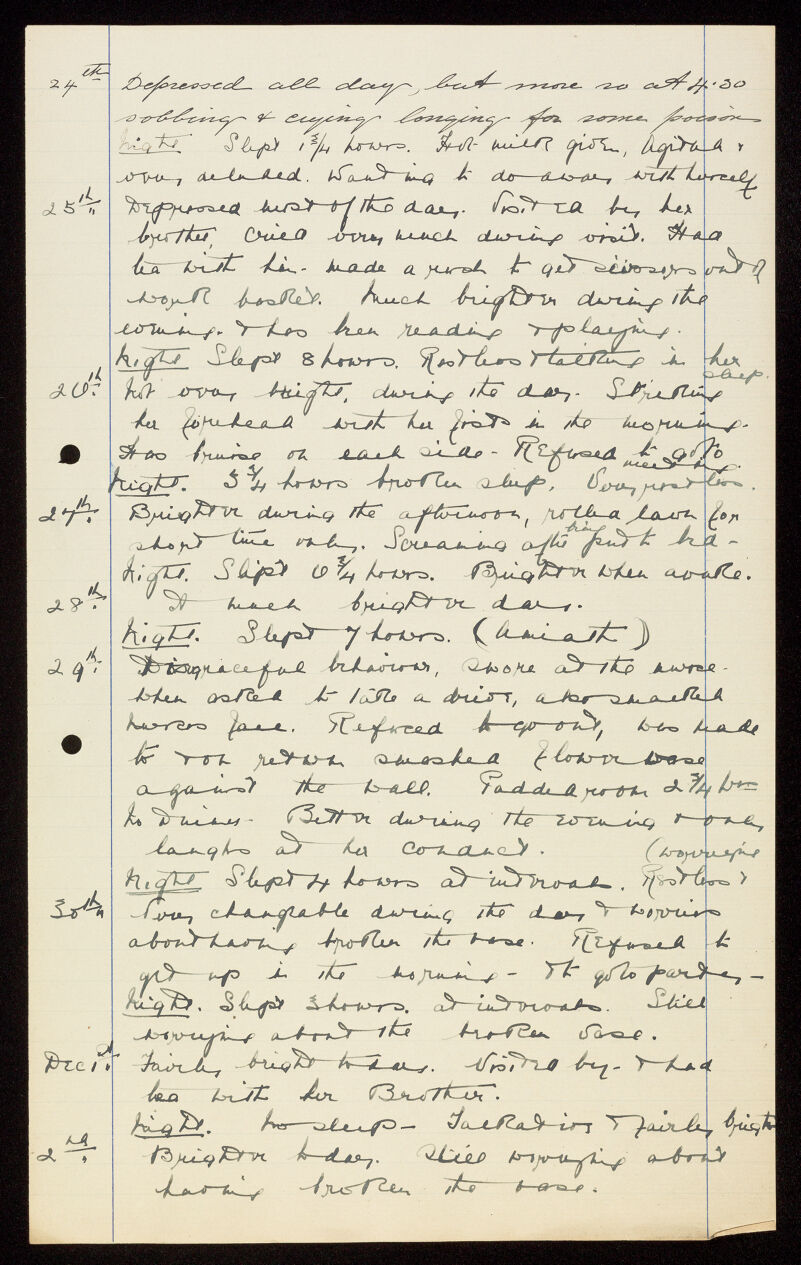 24th Depressed all day, but more so at 4.30
sobbing & crying longing for some poison
Night Slept 1 3/4 hours. Hot milk given, Agitated &
very deluded. Wanting to do away with herself
25th Depressed most of the day. Visited by her
brother, cried very much during visit. Had
tea with him - made a rush to get scissors out of
work basket. Much brighter during the
evening. & has been reading & playing.
Night Slept 8 hours. Restless & talking in her
sleep.
26th Not very bright, during the day. Striking
her forehead with her fists in the morning.
Has bruise on each side - Refused to go to
meeting.
Night. 5 3/4 hours broken sleep. Very restless.
27th Brighter during the afternoon, rolled lawn for
short time only. Screaming after being put to bed -
Night. Slept 6 3/4 hours. Brighter when awake.
28th A much brighter day.
Night. Slept 7 hours. (Amiath)
29th Disgraceful behaviour, swore at the nurse
when asked to take a drive, also smacked
nurses face. Refused to go out, was made
to & on return smashed flower vase
against the wall. Padded room 2 3/4 hrs
No dinner - Better during the evening & only
laughs at her conduct. (worrying
Night Slept 4 hours at intervals. Restless &
30th Very changeable during the day & worries
about having broken the vase. Refused to
get up in the morning - & to go to party -
Night. Slept 3 hours. at intervals. Still
worrying about the broken vase.
Dec 1st. Fairly bright today. Visited by - & had
tea with her Brother.
Night. No sleep - Talkative & fairly bright
2nd. Brighter today. Still worrying about
having broken the vase.